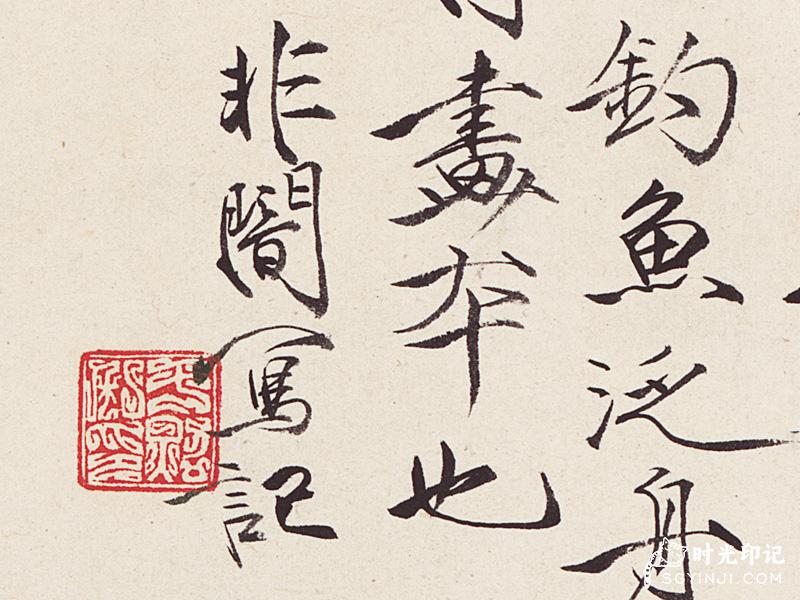 釣魚泛舟
畫本也
非闇寫記
时光印记
SGYINJI.COM